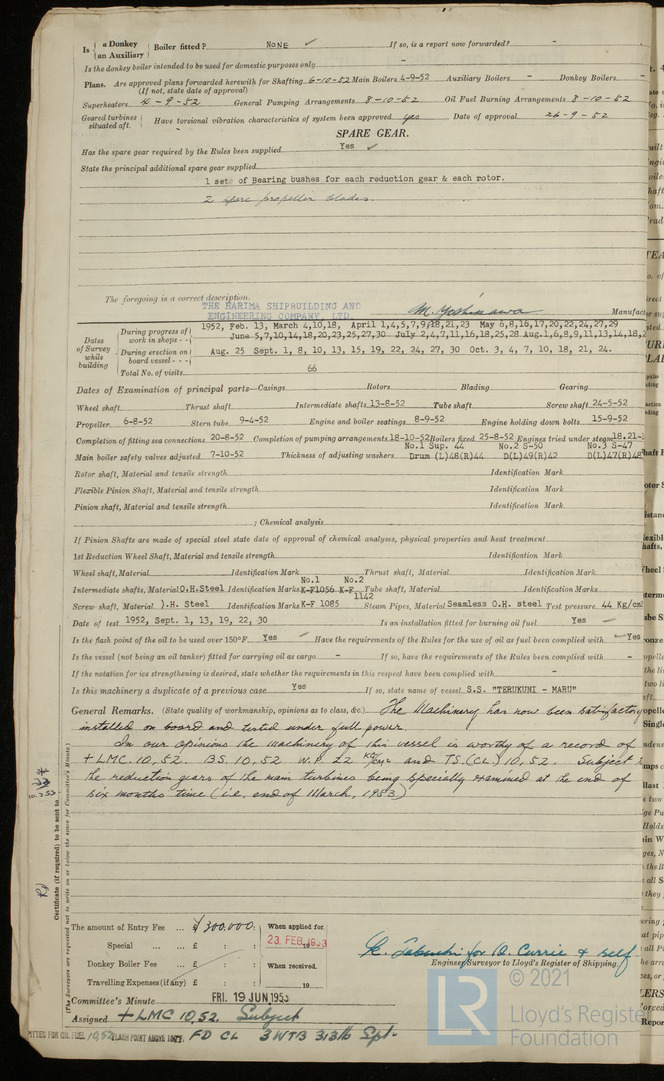 Is { a Donkey / an Auxiliary } Boiler fitted? NONE ✓ If so, is a report now forwarded? -
Is the donkey boiler intended to be used for domestic purposes only -
Plans. Are approved plans forwarded herewith for Shafting 6-10-52 Main Boilers 4-9-52 Auxiliary Boilers - Donkey Boilers -
(If not, state date of approval)
Superheaters 4-9-52 General Pumping Arrangements 8-10-52 Oil Fuel Burning Arrangements 8-10-52
Geared turbines situated aft. Have torsional vibration characteristics of system been approved yes Date of approval 26-9-52
SPARE GEAR.
Has the spare gear required by the Rules been supplied Yes ✓
State the principal additional spare gear supplied
1 set of Bearing bushes for each reduction gear & each rotor.
2 spare propeller blades.
The foregoing is a correct description.
THE HARIMA SHIPBUILDING AND
ENGINEERING COMPANY, LTD. M. Yoshikawa Manufac
Dates of Survey while building
During progress of work in shops - - 1952, Feb. 13, March 4,10,18, April 1,4,5,7,9,18,21,23 May 6,8,16,17,20,22,24,27,29
June 5,7,10,14,18,20,23,25,27,30 July 2,4,7,11,16,18,25,28 Aug.1,6,8,9,11,13,14,18,
During erection on board vessel - - - Aug. 25 Sept. 1, 8, 10, 13, 15, 19, 22, 24, 27, 30 Oct. 3, 4, 7, 10, 18, 21, 24.
Total No. of visits 66
Dates of Examination of principal parts—Casings Rotors Blading Gearing
Wheel shaft Thrust shaft Intermediate shafts 13-8-52 Tube shaft Screw shaft 24-5-52
Propeller 6-8-52 Stern tube 9-4-52 Engine and boiler seatings 8-9-52 Engine holding down bolts 15-9-52
Completion of fitting sea connections 20-8-52 Completion of pumping arrangements 18-10-52 Boilers fixed 25-8-52 Engines tried under steam 18,21-
No.1 Sup. 44 No.2 S-50 No.3 S-47
Main boiler safety valves adjusted 7-10-52 Thickness of adjusting washers Drum (L)48(R)44 D(L)49(R)42 D(L)47(R)48
Rotor shaft, Material and tensile strength Identification Mark
Flexible Pinion Shaft, Material and tensile strength Identification Mark
Pinion shaft, Material and tensile strength Identification Mark
; Chemical analysis
If Pinion Shafts are made of special steel state date of approval of chemical analyses, physical properties and heat treatment
1st Reduction Wheel Shaft, Material and tensile strength Identification Mark
Wheel shaft, Material Identification Mark Thrust shaft, Material Identification Mark
No.1 No.2
Intermediate shafts, Material O.H.Steel Identification Marks K-F1056 K-F 1142 Tube shaft, Material Identification Marks
Screw shaft, Material O.H. Steel Identification Marks K-F 1085 Steam Pipes, Material Seamless O.H. steel Test pressure 44 Kg/cm2
Date of test 1952, Sept. 1, 13, 19, 22, 30 Is an installation fitted for burning oil fuel Yes
Is the flash point of the oil to be used over 150°F. Yes Have the requirements of the Rules for the use of oil as fuel been complied with Yes
Is the vessel (not being an oil tanker) fitted for carrying oil as cargo - If so, have the requirements of the Rules been complied with -
If the notation for ice strengthening is desired, state whether the requirements in this respect have been complied with -
Is this machinery a duplicate of a previous case Yes If so, state name of vessel S.S. "TERUKUNI - MARU"
General Remarks. (State quality of workmanship, opinions as to class, &c.) The Machinery has now been satisfactory
installed on board and tested under full power.
In our opinions the machinery of this vessel is worthy of a record of
+LMC. 10,52. BS. 10,52 W.P. 22 kg/cm2 and TS.(CL) 10,52. Subject
the reduction gears of the main turbines being specially examined at the end of
six months time (i.e. end of March, 1953)
Certificate (if required) to be sent to
(The Surveyors are requested not to write on or below the space for Committee's Minute.)
The amount of Entry Fee ... ¥300,000: When applied for
Special ... £ : : 23 FEB 1953
Donkey Boiler Fee ... £ : : When received,
Travelling Expenses (if any) £ : : 19
for D. Currie & self
Engineer Surveyor to Lloyd's Register of Shipping.
Committee's Minute FRI. 19 JUN 1953
Assigned +LMC 10,52. Subject
FITTED FOR OIL FUEL 10,52 FLASH POINT ABOVE 150°F. FD CL 3WTB 313lb Spt.
© 2021
LR
Lloyd's Registe
Foundation